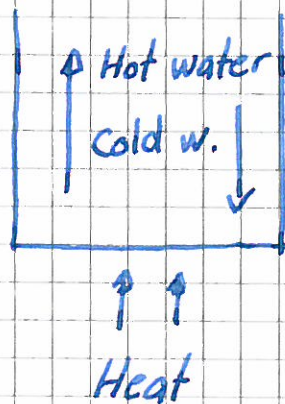 Hot water
Cold w.
Heat